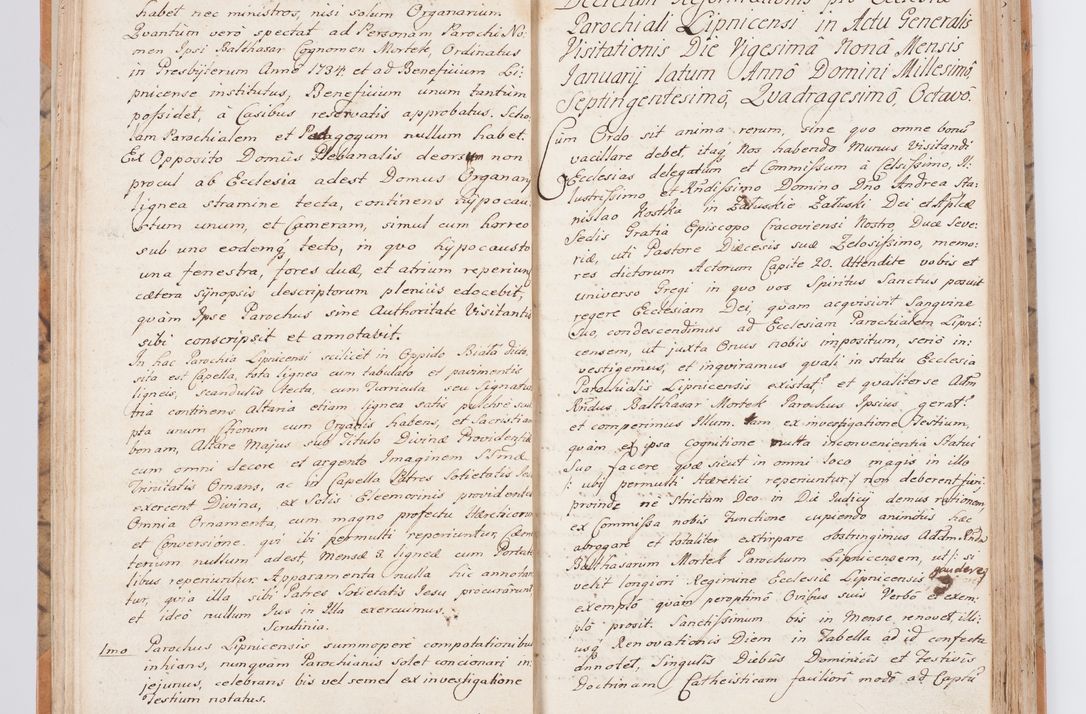 habet nec ministros, nisi solum Organarium.
Quantum verò spectat ad Personam Parochi No:
men Ipsi Balthasar Cognomen Mortek, Ordinatus
in Presbyterum Annô 1734 et ad Beneficium Li:
pnicense institutus, Beneficium unum tantùm
possidet, à Casibus reservatis approbatus. Scho:
lam Parochialem et Pedagogum nullum habet.
Ex Opposito Domûs Plebanalis deorsum non
procul ab Ecclesia adest Domus Organary
lignea stramine tecta, continens hypocau:
stum unum, et Cameram, simul cum horreo
sub uno eodemq; tecto, in quo hypocausto
una fenestra, fores duæ, et atrium reperiunt
cætera synopsis descriptorum pleniùs edocebit,
quàm Ipse Parochus sine Authoritate Visitantis
sibi conscripsit et annotavit.
In hac Parochia Lipnicensi scilicet in Oppido Biała dicto
sita est Capella, tota lignea cum tabulato et pavimentis
ligneis, scandulis tecta, cum Turricula seu Signatu
tria continens Altaria etiam lignea satis pulchrè scul
pta unum Chorum cum Organis habens, et Sacristiam
bonam, Altare Majus sub Titulo Divinæ Providentiæ
cum omni decore et argento Imaginem SSmæ
Trinitatis Ornans, ac in Capella Patres Societatis Jesu
exercent Divina, ex Solis Eleemosinis providentes
Omnia Ornamenta, cum magno profectu Hæreticorum
et Conversione, qui ibi permulti reperiuntur, Cæme
terium nullum adest, Mensæ 3 ligneæ cum Portati
libus reperiuntur. Apparamenta nulla hic annotan
tur, quia illa sibi Patres Societatis Jesu procurarunt,
et ideò nullum Jus in Illa exercuimus.
Scrutinia.
Imo Parochus Lipnicensis summopere compotationibus
inhians, nunquam Parochianis solet concionari in:
jejunus, celebrans bis vel semel ex investigatione
Testium notatus.
Decretum Reformationis pro Ecclesia
Parochiali Lipnicensi in Actu Generalis
Visitationis Die Vigesima Nonâ Mensis
January latum Annô Domini Millesimô,
Septingentesimô, Quadragesimô, Octavô.
Cùm Ordo sit anima rerum, sine quo omne bonũ
vacillare debet, itaq; Nos habendo Munus Visitandi
Ecclesias delegatum et Commissum à Celsissimo, Il:
lustrissimo et Rndissimo Domino Dno Andrea Sta:
nislao Kostka in Załuskie Załuski Dei et Aplicæ
Sedis Gratiâ Episcopo Cracoviensi Nostro, Duce Seve:
riæ, uti Pastore Diæcesis suæ Zelosissimo, memo:
res dictorum Actorum Capite 20. Attendite vobis et
universo Gregi in quo vos Spiritus Sanctus posuit
regere Ecclesiam Dei, quam acquisivit Sanguine
Suo, condescendimus ad Ecclesiam Parochialem Lipni:
censem, ut juxta Onus nobis impositum, seriò in:
vestigemus, et inquiramus quali in statu Ecclesia
Parochialis Lipnicensis existat et qualiter se Adm
Rndus Balthasar Mortek Parochus Ipsius gerat
et comperimus Illum. tam ex investigatione Testium,
quàm ex ipsa cognitione multa inconvenientia Statui
Suo facere quæ sicut in omni loco magis in illo
/: ubi permulti Hæretici reperiuntur :/ non deberent fieri,
proinde ne strictam Deo in Die Judicij demus rationem,
ex Commissa nobis Functione cupiendo animitùs hæc
abrogare et totaliter extirpare obstringimus Addm Rndũ
Balthasarum Mortek Parochum Lipnicensem, ut /: si
velit longiori Regimine Ecclesiæ Lipnicensis gaudere :/
exemplô quàm peroptimô Ovibus suis Verbô et exem:
plô prosit. Sanctissimum bis in Mense renovet, illi:
usq; Renovationis Diem in Tabella ad id confecta
annotet, Singulis Diebus Dominicis et Festivis
Doctrinam Catheisticam faciliori modô ad Captũ